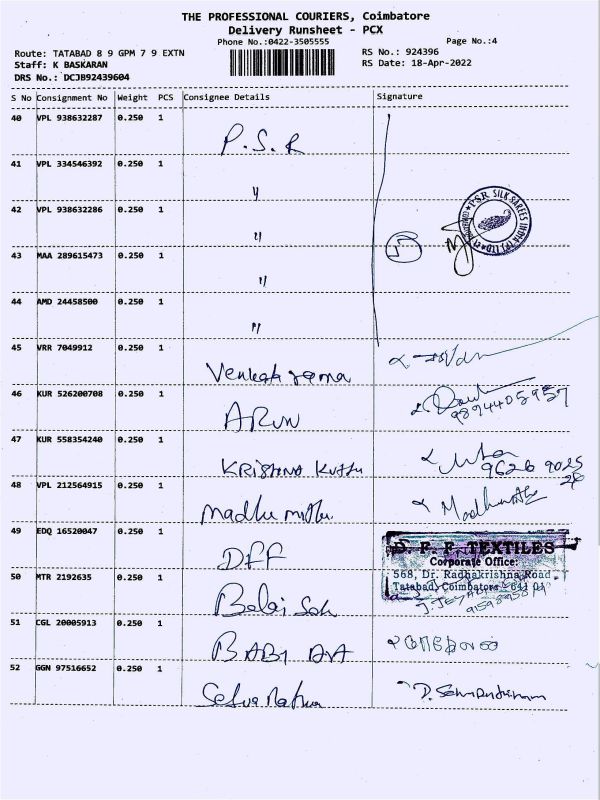 THE PROFESSIONAL COURIERS, Coimbatore
Delivery Runsheet - PCX
Phone No.:0422-3505555
Page No.:4
Route: TATABAD 8 9 GPM 7 9 EXTN
RS No.: 924396
Staff: K BASKARAN
RS Date: 18-Apr-2022
DRS No.: DCJB92439604
S No Consignment No Weight PCS Consignee Details Signature
40 VPL 938632287 0.250 1 P.S.R
41 VPL 334546392 0.250 1 "
42 VPL 938632286 0.250 1 "
PSR SILK SAREES INDIA (P) LTD
43 MAA 289615473 0.250 1 "
44 AMD 24458500 0.250 1 "
45 VRR 7049912 0.250 1 Venkat rama
46 KUR 526200708 0.250 1 ARUN
9894405957
47 KUR 558354240 0.250 1 KRISHNA KUTTU
9626 9025
48 VPL 212564915 0.250 1 Madhu mithu
49 EDQ 16520047 0.250 1 DFF
D. F. F. TEXTILES
Corporate Office:
568, Dr. Radhakrishna Road
Tatabad, Coimbatore - 641 01
50 MTR 2192635 0.250 1 Balaji
51 CGL 20005913 0.250 1 BABY
52 GGN 97516652 0.250 1